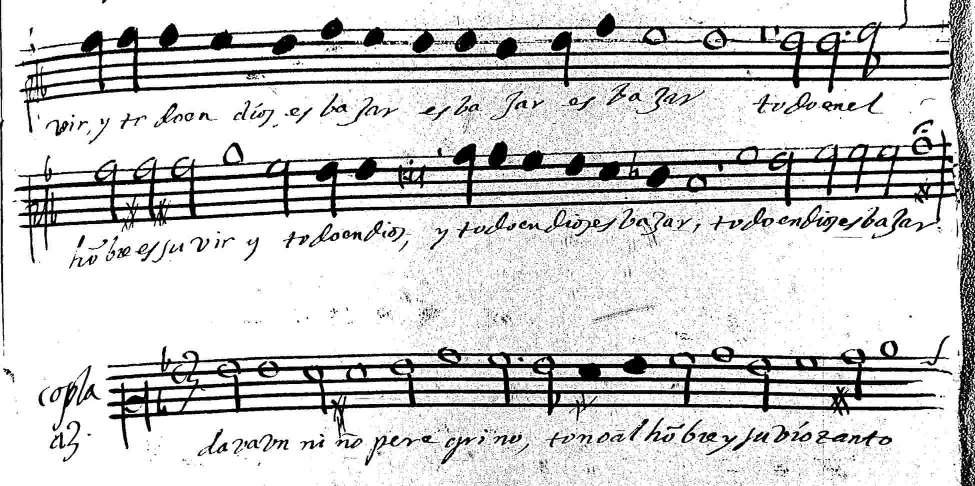 vir, y todo en dios es baxar es ba xar es baxar todo en el
hõbre es su vir y todo en dios, y todo en dios es baxar, todo en dios es baxar
copla
as.
un niño peregrino, tono al hõbre y su